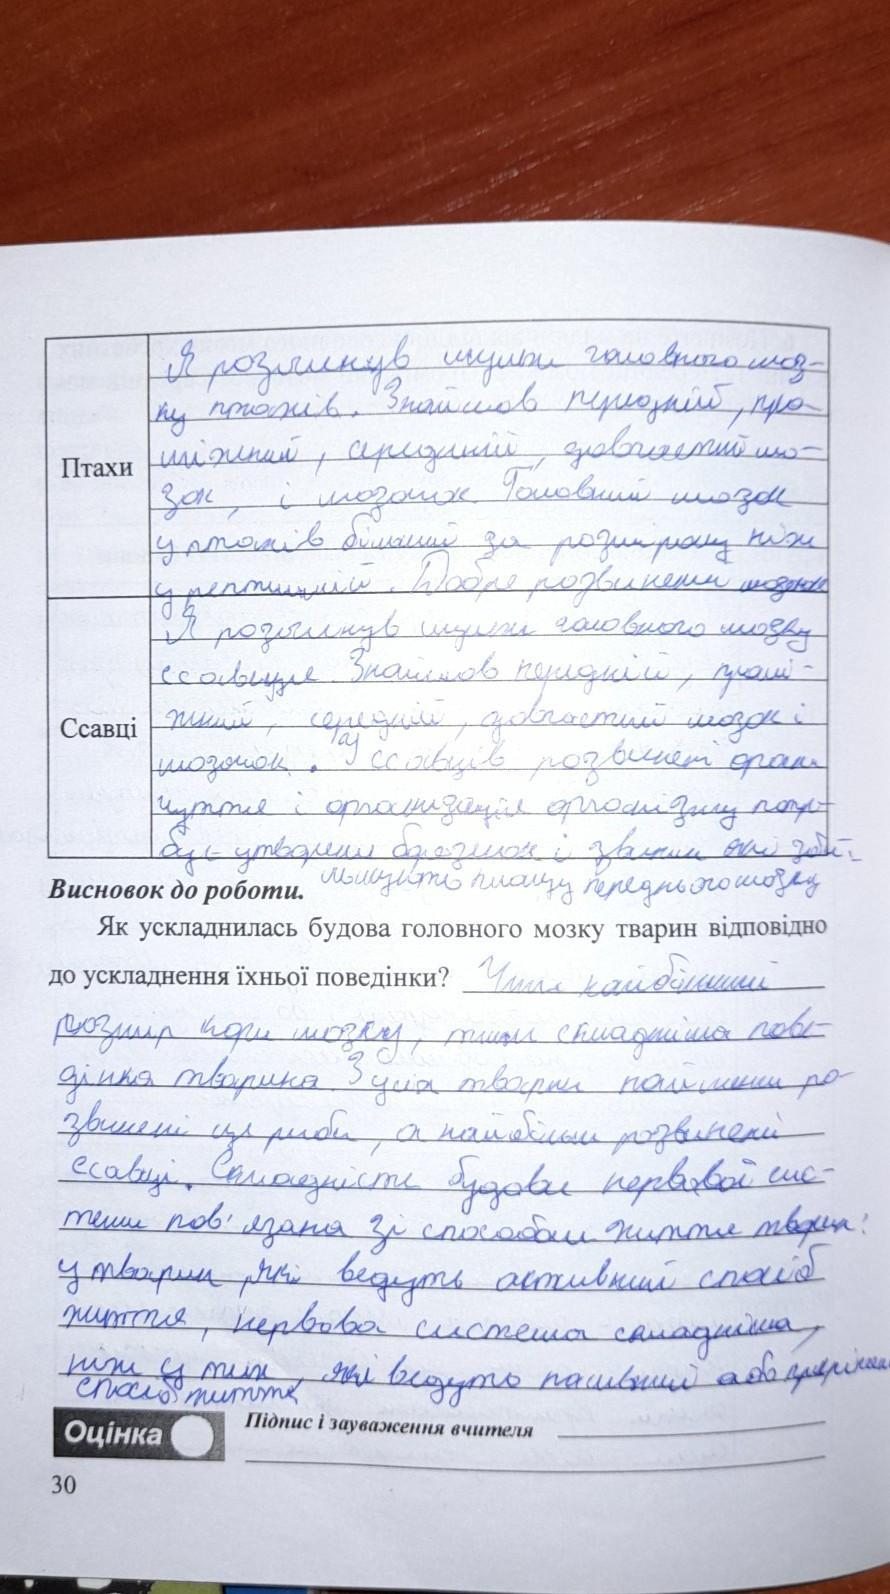 Птахи
Я розглинув шульи головного моз-
ку птахів. Знайшов передній, про-
міжний, середній, довгастий мо-
зок, і мозочок. Головний мозок
у птахів більший за розміром ніж
у рептилій. Добре розвинений мозочок
Ссавці
Я розглинув шульи головного мозку
ссавця. Знайшов передній, промі-
жний, середній, довгастий мозок і
мозочок. у ссавців розвинені орган
чуття і організація організму потре-
бує утворення борозенок і звивин які збі-
льшують площу переднього мозку
Висновок до роботи.
Як ускладнилась будова головного мозку тварин відповідно
до ускладнення їхньої поведінки? Чим найбільший
розмір кори мозку, тим складніша пове-
дінка тварина. З усіх тварин найменш ро-
звинені це риби, а найбільш розвинені
ссавці. Складність будови нервової сис-
теми пов'язана зі способом життя тварин:
у тварин, які ведуть активний спосіб
життя, нервова система складніша,
ніж у тих, які ведуть пасивний або
спосіб життя
Оцінка
Підпис і зауваження вчителя
30